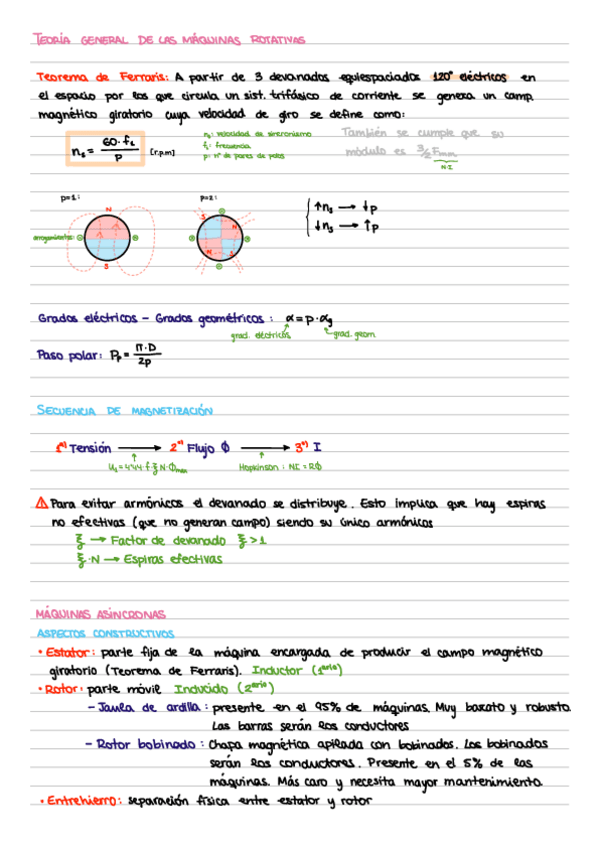 TEORÍA GENERAL DE LAS MÁQUINAS ROTATIVAS
Teorema de Ferraris: A partir de 3 devanados equiespaciados 120° eléctricos en
el espacio por los que circula un sist. trifásico de corriente se genera un camp.
magnético giratorio cuya velocidad de giro se define como:
n_s = 60·f_1 / P [r.p.m]
n_s: velocidad de sincronismo
f_1: frecuencia
p: nº de pares de polos
También se cumple que su
módulo es 3/2 Fmm
N·I
p=1:
N
S
p=2:
S
N
N
S
↑n_s → ↓p
↓n_s → ↑p
Grados eléctricos - Grados geométricos: α = p·α_g
grad. eléctricos
grad. geom.
Paso polar: P_p = π·D / 2p
SECUENCIA DE MAGNETIZACIÓN
1º) Tensión → 2º) Flujo Φ → 3º) I
U_1 = 4'44·f·ξ·N·Φ_max
Hopkinson: NI = RΦ
⚠ Para evitar armónicos el devanado se distribuye. Esto implica que hay espiras
no efectivas (que no generan campo) siendo su único armónicos
ξ → Factor de devanado ξ > 1
ξ·N → Espiras efectivas
MÁQUINAS ASÍNCRONAS
ASPECTOS CONSTRUCTIVOS
• Estator: parte fija de la máquina encargada de producir el campo magnético
giratorio (Teorema de Ferraris). Inductor (1ario)
• Rotor: parte móvil Inducido (2ario)
- Jaula de ardilla: presente en el 95% de máquinas. Muy barato y robusto.
Las barras serán los conductores
- Rotor bobinado: Chapa magnética apilada con bobinados. Los bobinados
serán los conductores. Presente en el 5% de las
máquinas. Más caro y necesita mayor mantenimiento.
• Entrehierro: separación física entre estator y rotor